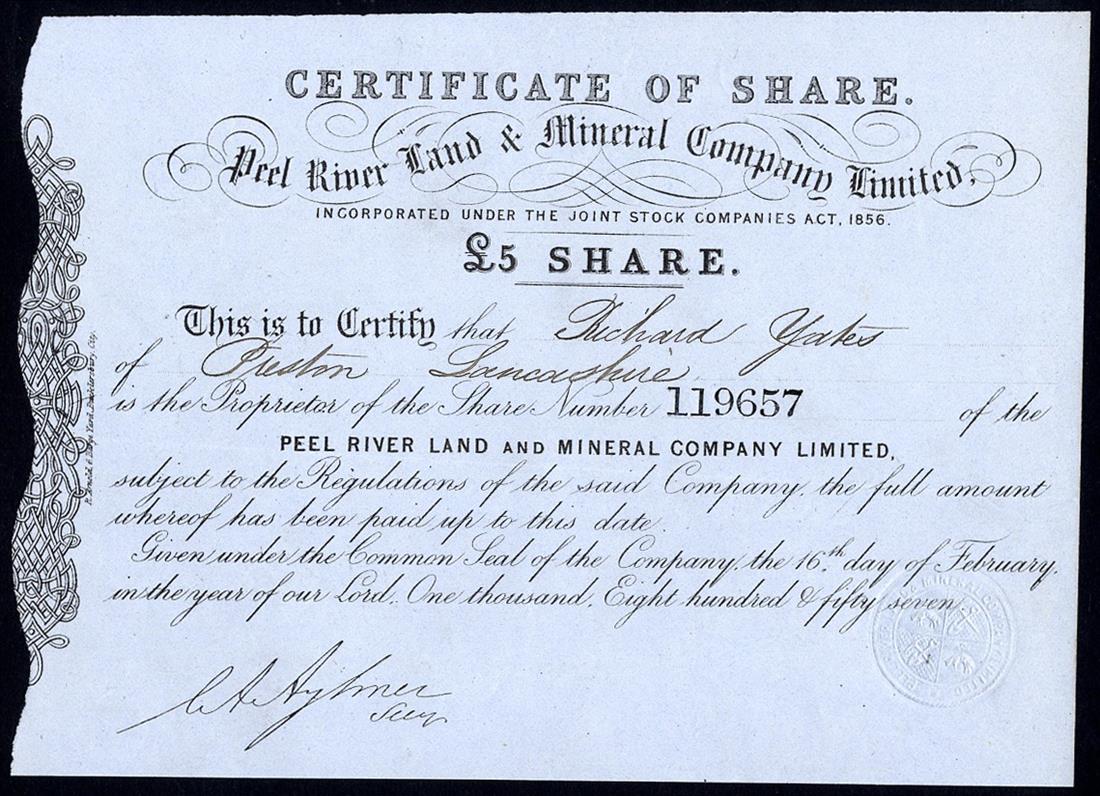 CERTIFICATE OF SHARE.
Peel River Land & Mineral Company Limited,
INCORPORATED UNDER THE JOINT STOCK COMPANIES ACT, 1856.
£5 SHARE.
This is to Certify that Richard Yates
of Preston Lancashire
is the Proprietor of the Share Number 119657 of the
PEEL RIVER LAND AND MINERAL COMPANY LIMITED,
subject to the Regulations of the said Company, the full amount
whereof has been paid up to this date.
Given under the Common Seal of the Company, the 16th day of February,
in the year of our Lord, One thousand, Eight hundred & fifty seven.
C A Aylmer
Secy